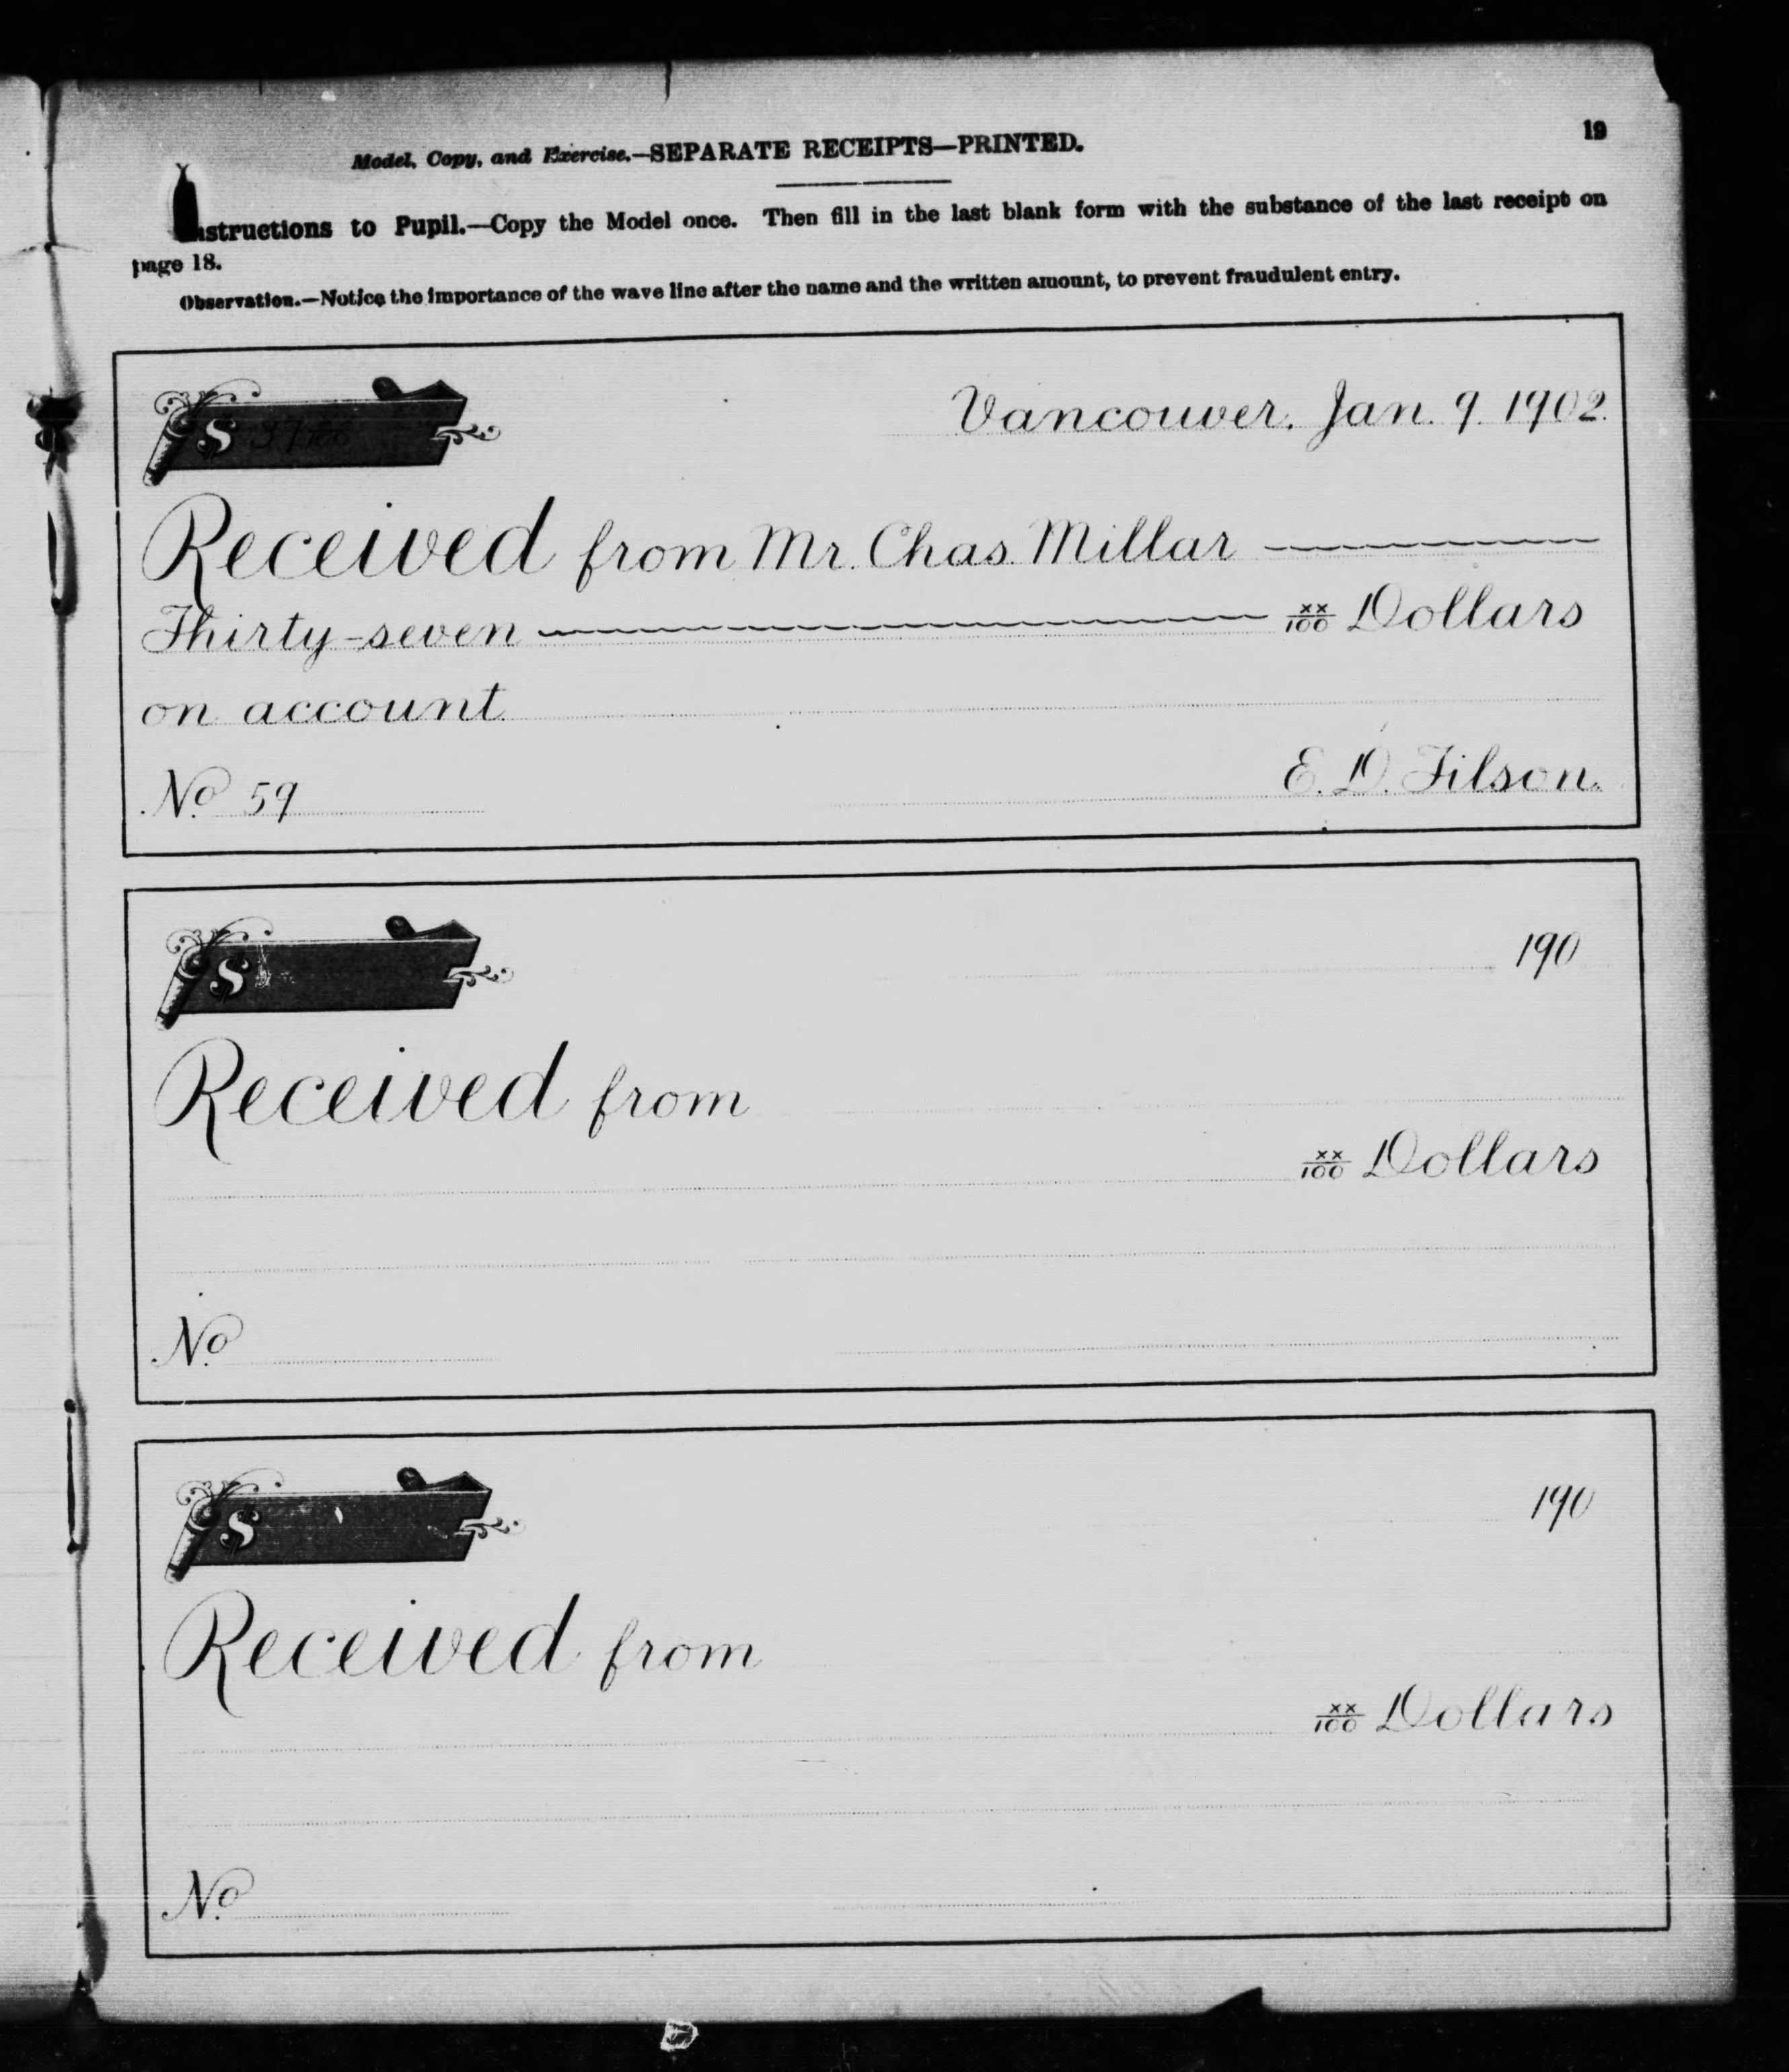 19
Model, Copy, and Exercise.—SEPARATE RECEIPTS—PRINTED.
Instructions to Pupil.—Copy the Model once. Then fill in the last blank form with the substance of the last receipt on
page 18.
Observation.—Notice the importance of the wave line after the name and the written amount, to prevent fraudulent entry.
$ 37 xx/100 Vancouver, Jan. 9. 1902.
Received from Mr. Chas. Millar
Thirty-seven xx/100 Dollars
on account.
No 59 E. D. Filson.
$ 190
Received from
xx/100 Dollars
No
$ 190
Received from
xx/100 Dollars
No